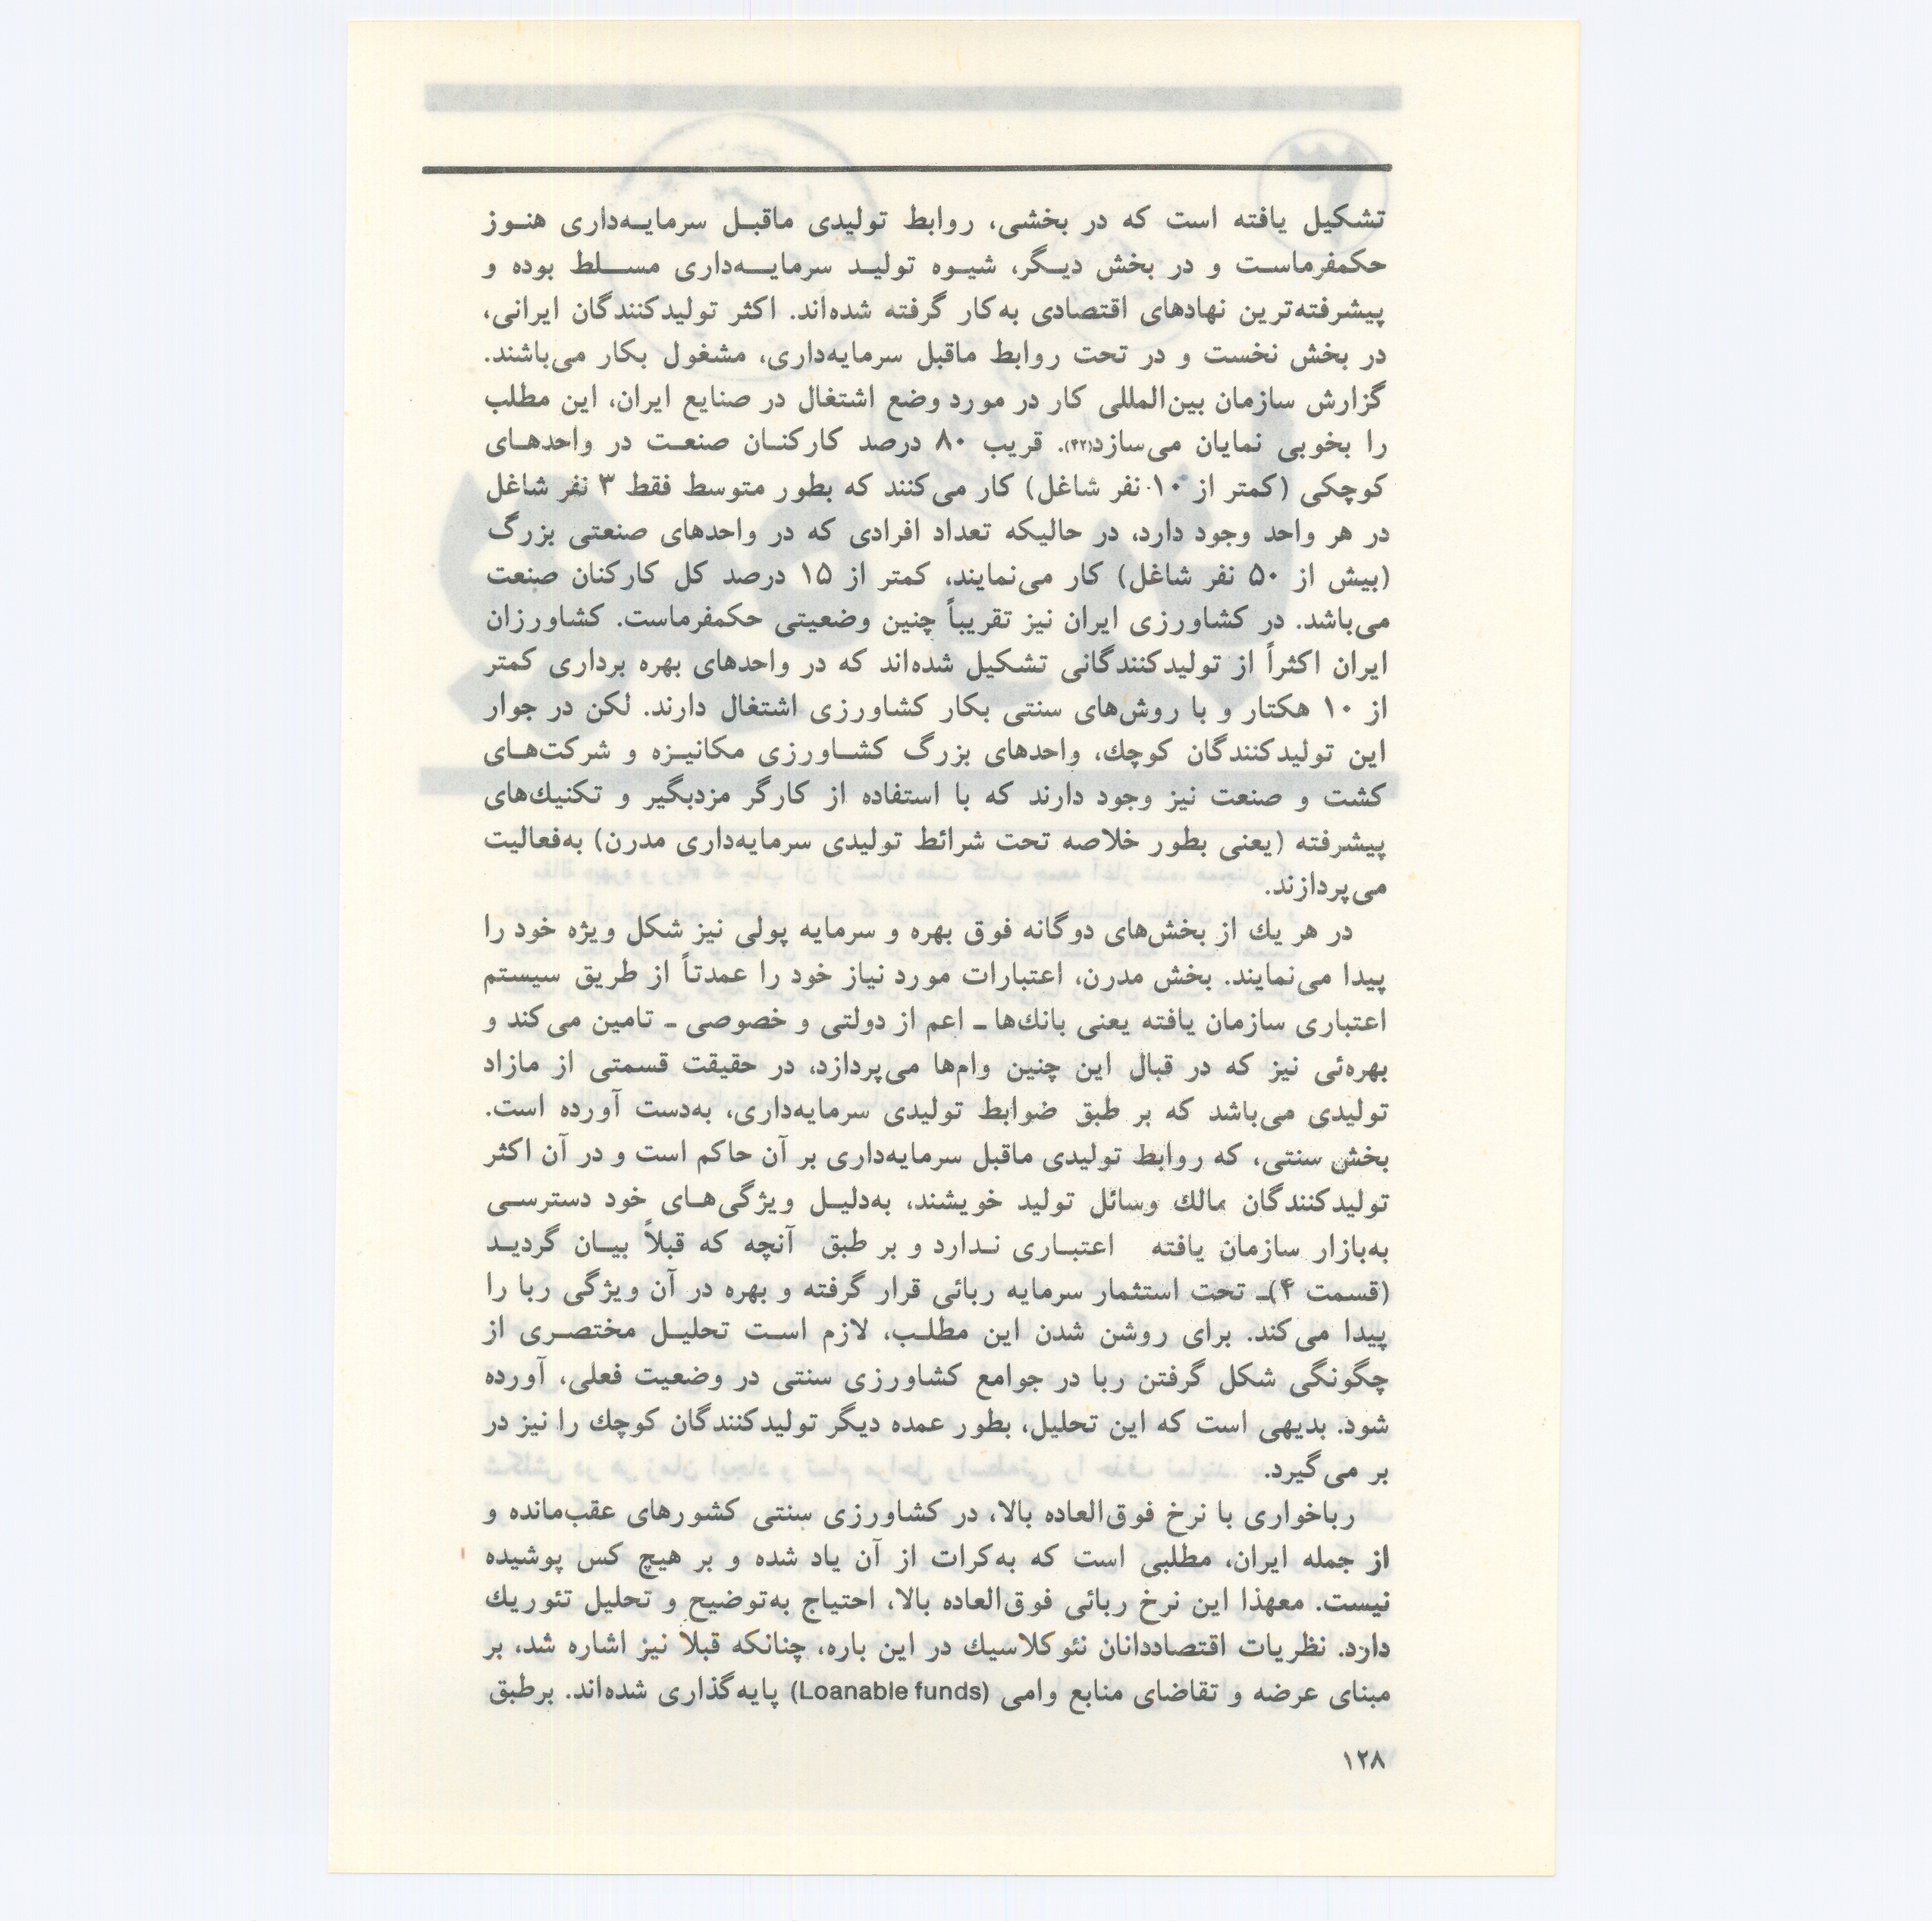 تشکیل یافته است که در بخشی، روابط تولیدی ماقبل سرمایه‌داری هنوز
حکمفرماست و در بخش دیگر، شیوه تولید سرمایه‌داری مسلط بوده و
پیشرفته‌ترین نهادهای اقتصادی به‌کار گرفته شده‌اند. اکثر تولیدکنندگان ایرانی،
در بخش نخست و در تحت روابط ماقبل سرمایه‌داری، مشغول بکار می‌باشند.
گزارش سازمان بین‌المللی کار در مورد وضع اشتغال در صنایع ایران، این مطلب
را بخوبی نمایان می‌سازد(۴۲). قریب ۸۰ درصد کارکنان صنعت در واحدهای
کوچکی (کمتر از ۱۰ نفر شاغل) کار می‌کنند که بطور متوسط فقط ۳ نفر شاغل
در هر واحد وجود دارد، در حالیکه تعداد افرادی که در واحدهای صنعتی بزرگ
(بیش از ۵۰ نفر شاغل) کار می‌نمایند، کمتر از ۱۵ درصد کل کارکنان صنعت
می‌باشد. در کشاورزی ایران نیز تقریباً چنین وضعیتی حکمفرماست. کشاورزان
ایران اکثراً از تولیدکنندگانی تشکیل شده‌اند که در واحدهای بهره برداری کمتر
از ۱۰ هکتار و با روش‌های سنتی بکار کشاورزی اشتغال دارند. لکن در جوار
این تولیدکنندگان کوچك، واحدهای بزرگ کشاورزی مکانیزه و شرکت‌های
کشت و صنعت نیز وجود دارند که با استفاده از کارگر مزدبگیر و تکنیك‌های
پیشرفته (یعنی بطور خلاصه تحت شرائط تولیدی سرمایه‌داری مدرن) به‌فعالیت
می‌پردازند.
در هر یك از بخش‌های دوگانه فوق بهره و سرمایه پولی نیز شکل ویژه خود را
پیدا می‌نمایند. بخش مدرن، اعتبارات مورد نیاز خود را عمدتاً از طریق سیستم
اعتباری سازمان یافته یعنی بانك‌ها ـ اعم از دولتی و خصوصی ـ تامین می‌کند و
بهره‌ئی نیز که در قبال این چنین وام‌ها می‌پردازد، در حقیقت قسمتی از مازاد
تولیدی می‌باشد که بر طبق ضوابط تولیدی سرمایه‌داری، به‌دست آورده است.
بخش سنتی، که روابط تولیدی ماقبل سرمایه‌داری بر آن حاکم است و در آن اکثر
تولیدکنندگان مالك وسائل تولید خویشند، به‌دلیل ویژگی‌های خود دسترسی
به‌بازار سازمان یافته اعتباری ندارد و بر طبق آنچه که قبلاً بیان گردید
(قسمت ۴)ـ تحت استثمار سرمایه ربائی قرار گرفته و بهره در آن ویژگی ربا را
پیدا می‌کند. برای روشن شدن این مطلب، لازم است تحلیل مختصری از
چگونگی شکل گرفتن ربا در جوامع کشاورزی سنتی در وضعیت فعلی، آورده
شود. بدیهی است که این تحلیل، بطور عمده دیگر تولیدکنندگان کوچك را نیز در
بر می‌گیرد.
رباخواری با نرخ فوق‌العاده بالا، در کشاورزی سنتی کشورهای عقب‌مانده و
از جمله ایران، مطلبی است که به‌کرات از آن یاد شده و بر هیچ کس پوشیده
نیست. معهذا این نرخ ربائی فوق‌العاده بالا، احتیاج به‌توضیح و تحلیل تئوریك
دارد. نظریات اقتصاددانان نئوکلاسیك در این باره، چنانکه قبلا نیز اشاره شد، بر
مبنای عرضه و تقاضای منابع وامی (Loanable funds) پایه‌گذاری شده‌اند. برطبق
۱۲۸